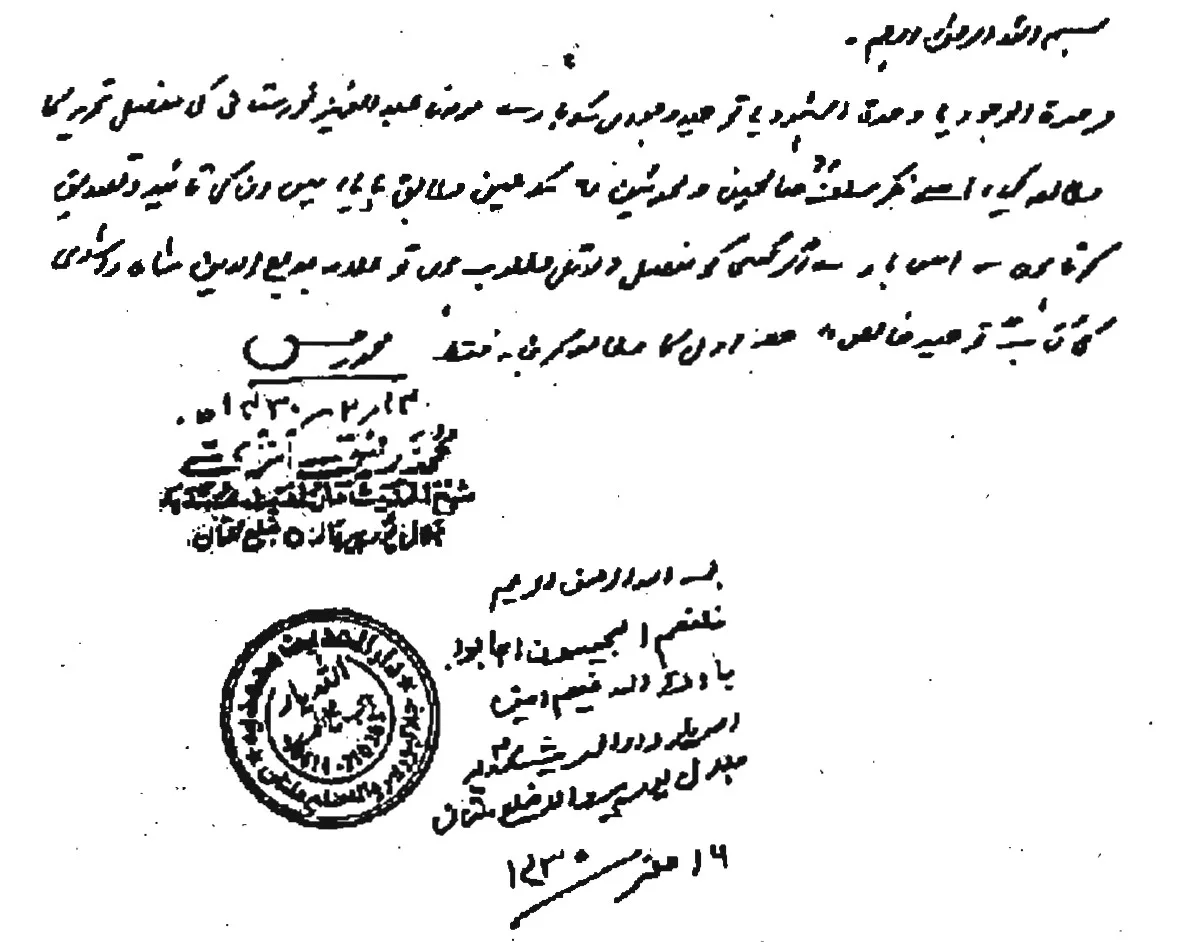 بسم اللہ الرحمن الرحیم ۔
وحدة الوجود یا وحدة الشہود یا توحید وجودی کے بارے مولانا عبدالعزیز نورستانی کی مفصل تحریر کا
مطالعہ کیا، اسے فکر سلف صالحین و محدثین کے عین مطابق پایا، میں ان کی تائید و تصدیق
کرتا ہوں ۔ اس بارے اگر کسی کو مفصل دلائل مطلوب ہوں تو علامہ بدیع الدین شاہ راشدی
کی کتاب توحید خالص حصہ اول کا مطالعہ کریں ۔ فقط
محمد رفیق
۱۳/۲/۱۴۳۰ھ
محمد رفیق اثری
شیخ الحدیث دارالحدیث محمدیہ
جلال پور پیروالہ ضلع ملتان
بسم اللہ الرحمن الرحیم
فلنعم المجیبون اجابوا
بارک اللہ فیہم آمین
اللہ یار دارالحدیث محمدیہ
جلال پور پیروالا ضلع ملتان
۱۶ صفر ۱۴۳۰
دارالحدیث محمدیہ
جلالپور پیروالہ ضلع ملتان
اللہ یار